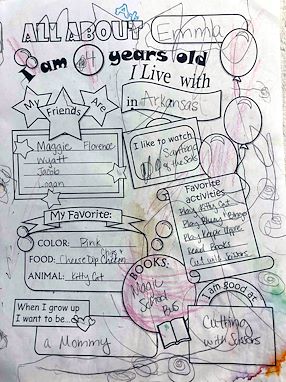 ALL ABOUT Emma
I am 4 years old
I Live with
in Arkansas
My Friends Are
Maggie Florence
Wyatt
Jacob
Logan
I like to watch
of the Sea
My Favorite:
COLOR: Pink
FOOD: Cheese Dip Chips Chicken
ANIMAL: Kitty Cat
Favorite activities
Play Kitty Cat
Play Bluey
Play
Read Books
Cut with Scissors
BOOKS:
Magic
School
Bus
When I grow up
I want to be...
a Mommy
I am good at
Cutting
with Scissors